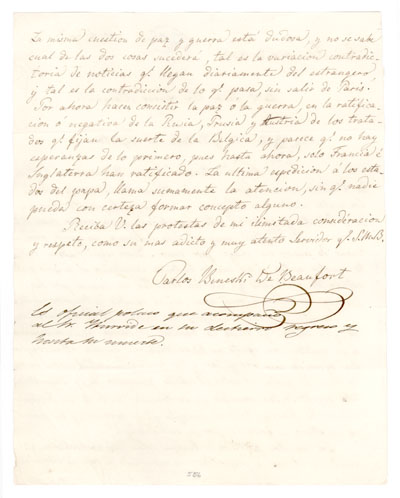 La misma cuestion de paz y guerra está dudosa, y no se sabe
cual de las dos cosas sucederá, tal es la variacion contradic-
toria de noticias q.e llegan diariamente del estrangero,
y tal es la contradicion de lo q.e pasa, sin salir de Paris.
Por ahora hacen consistir la paz o la guerra, en la ratifica-
cion ó negativa de la Rusia, Prusia y Austria de los trata-
dos q.e fijan la suerte de la Belgica; y parece q.e no hay
esperanzas de lo primero, pues hasta ahora, solo Francia é
Inglaterra han ratificado. La ultima espedicion á los esta-
dos del papa, llama sumamente la atencion, sin q.e nadie
pueda con certeza formar concepto alguno.
Reciba V. las protestas de mi ilimitada consideracion
y respeto, como su mas adicto y muy atento Servidor q.e S.M.B.
Carlos Beneski De Beaufort
Es oficial polaco que acompañó
al Sr. Yturvide en su destierro regreso y
hasta su muerte.